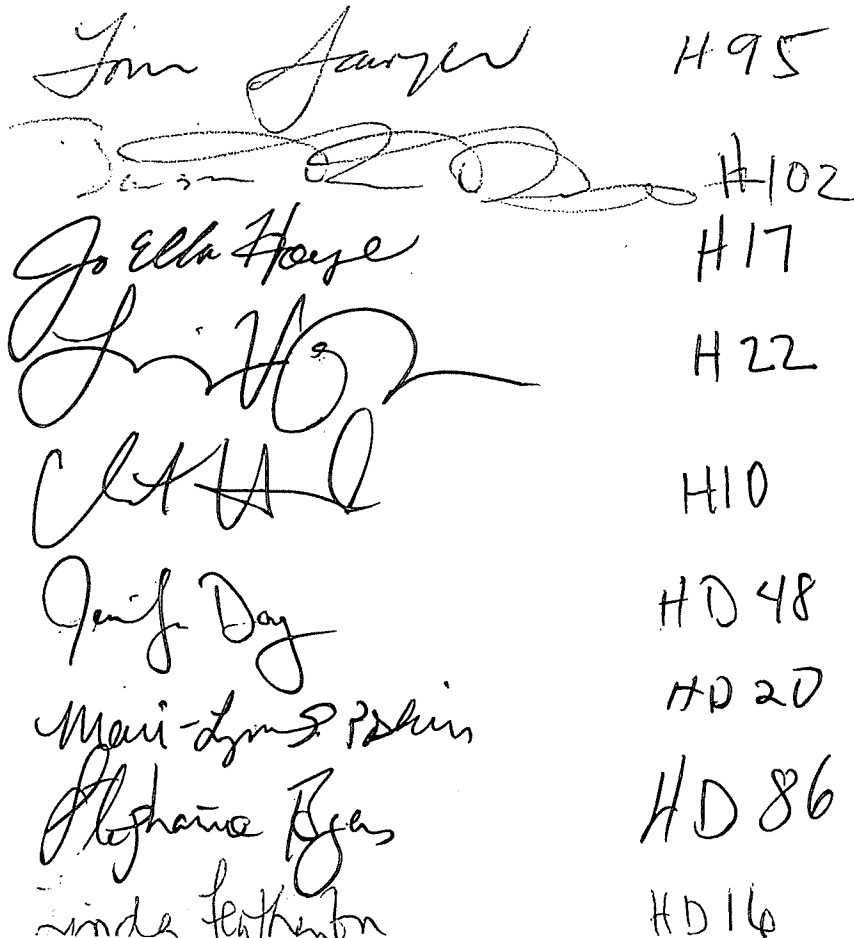 Tom Sawyer H 95
H 102
Jo Ella Hoye H 17
H 22
H 10
Jennifer Day HD 48
Mari-Lynn Poskin HD 20
Stephanie Byers HD 86
Linda Featherston HD 16